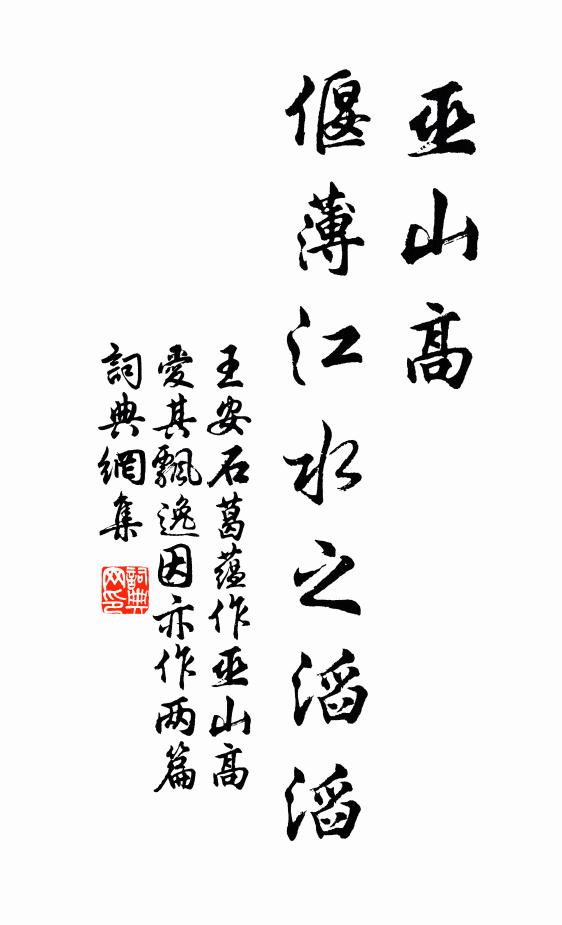 巫山高
偃薄江水之滔滔
王安石葛蕴作巫山高
愛其飄逸因亦作两篇
詞典網集
詞典网印